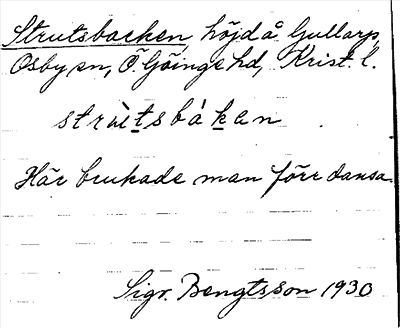 Strutsbacken, höjd å Gullarp,
Osby sn, Ö. Göinge hd, Krist. l.
strùtsbákan
Här brukade man förr dansa.
Sigr. Bengtsson 1930